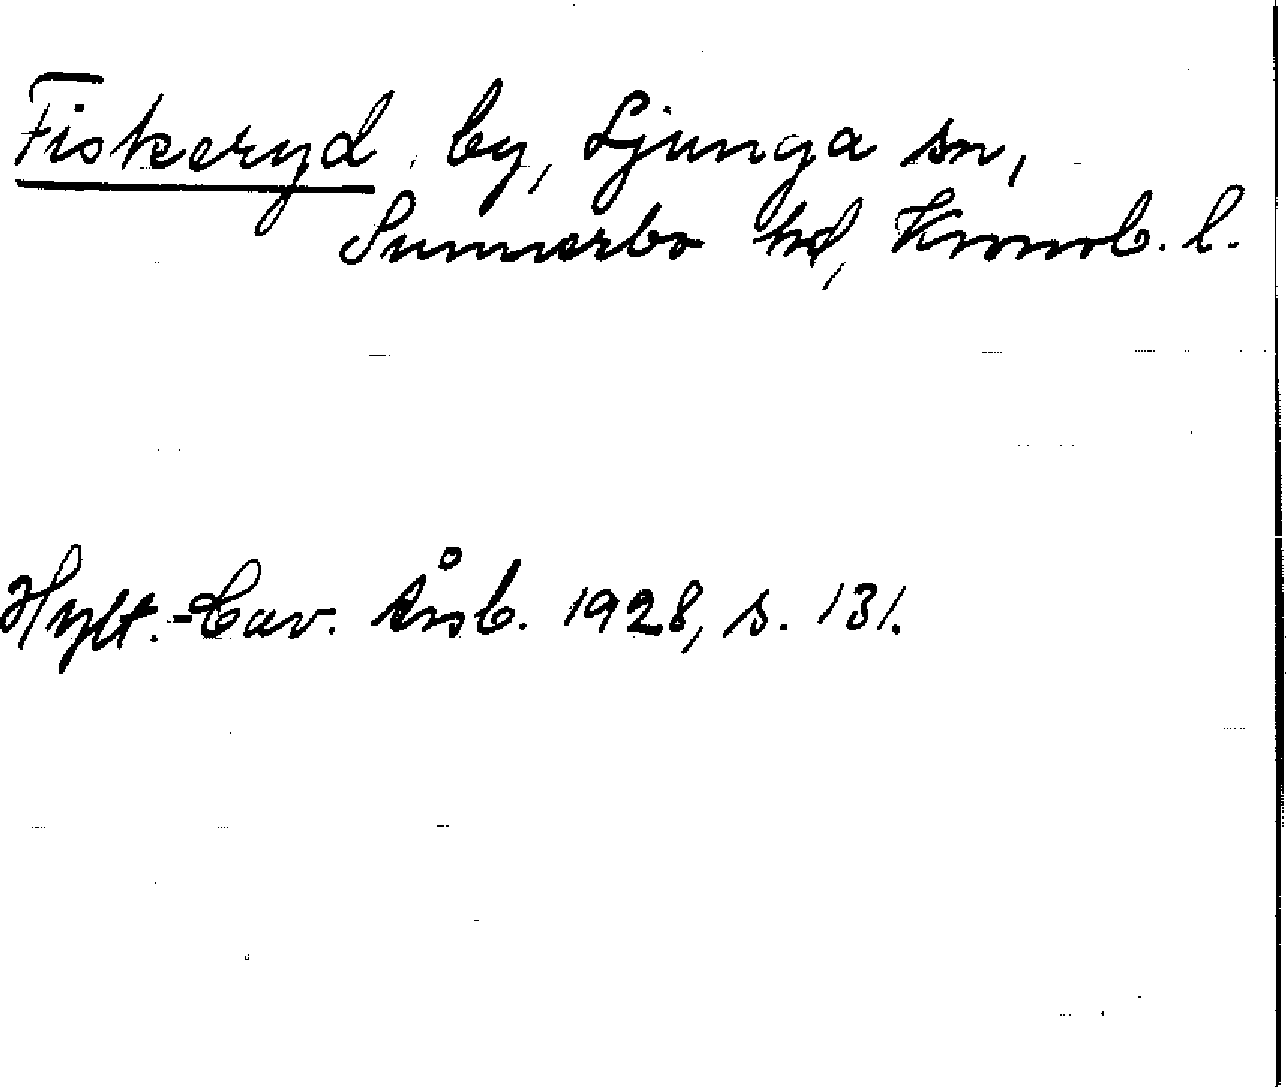 Fiskeryd, by, Ljunga sn,
Sunnerbo hd, Kronob. l.
Hylt.-Cav. årsb. 1928, s. 131.